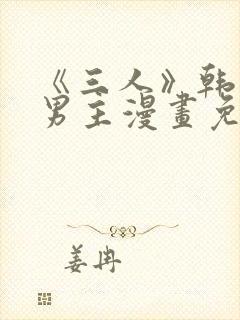 《三人》韩
男主漫畫免
姜冉